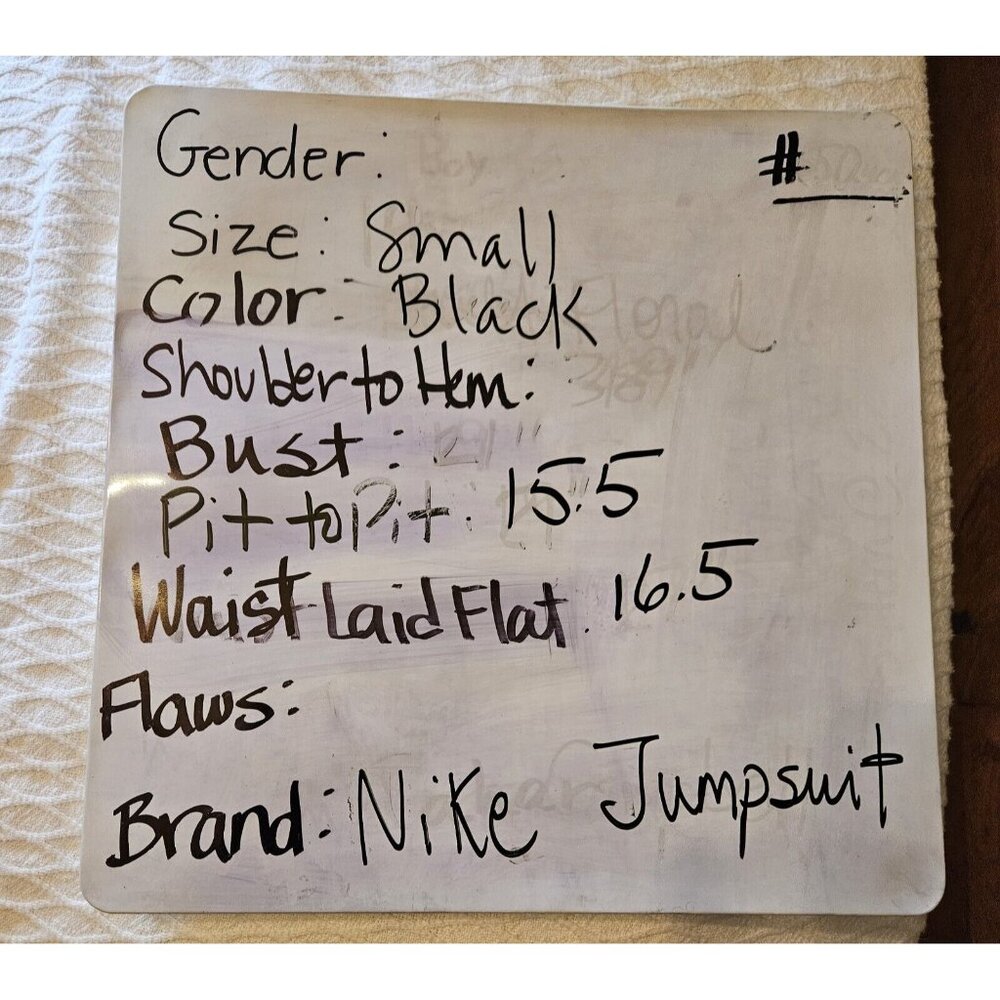 Gender: #
Size: Small
Color: Black
Shoulder to Hem:
Bust:
Pit to Pit: 15.5
Waist Laid Flat: 16.5
Flaws:
Brand: Nike Jumpsuit